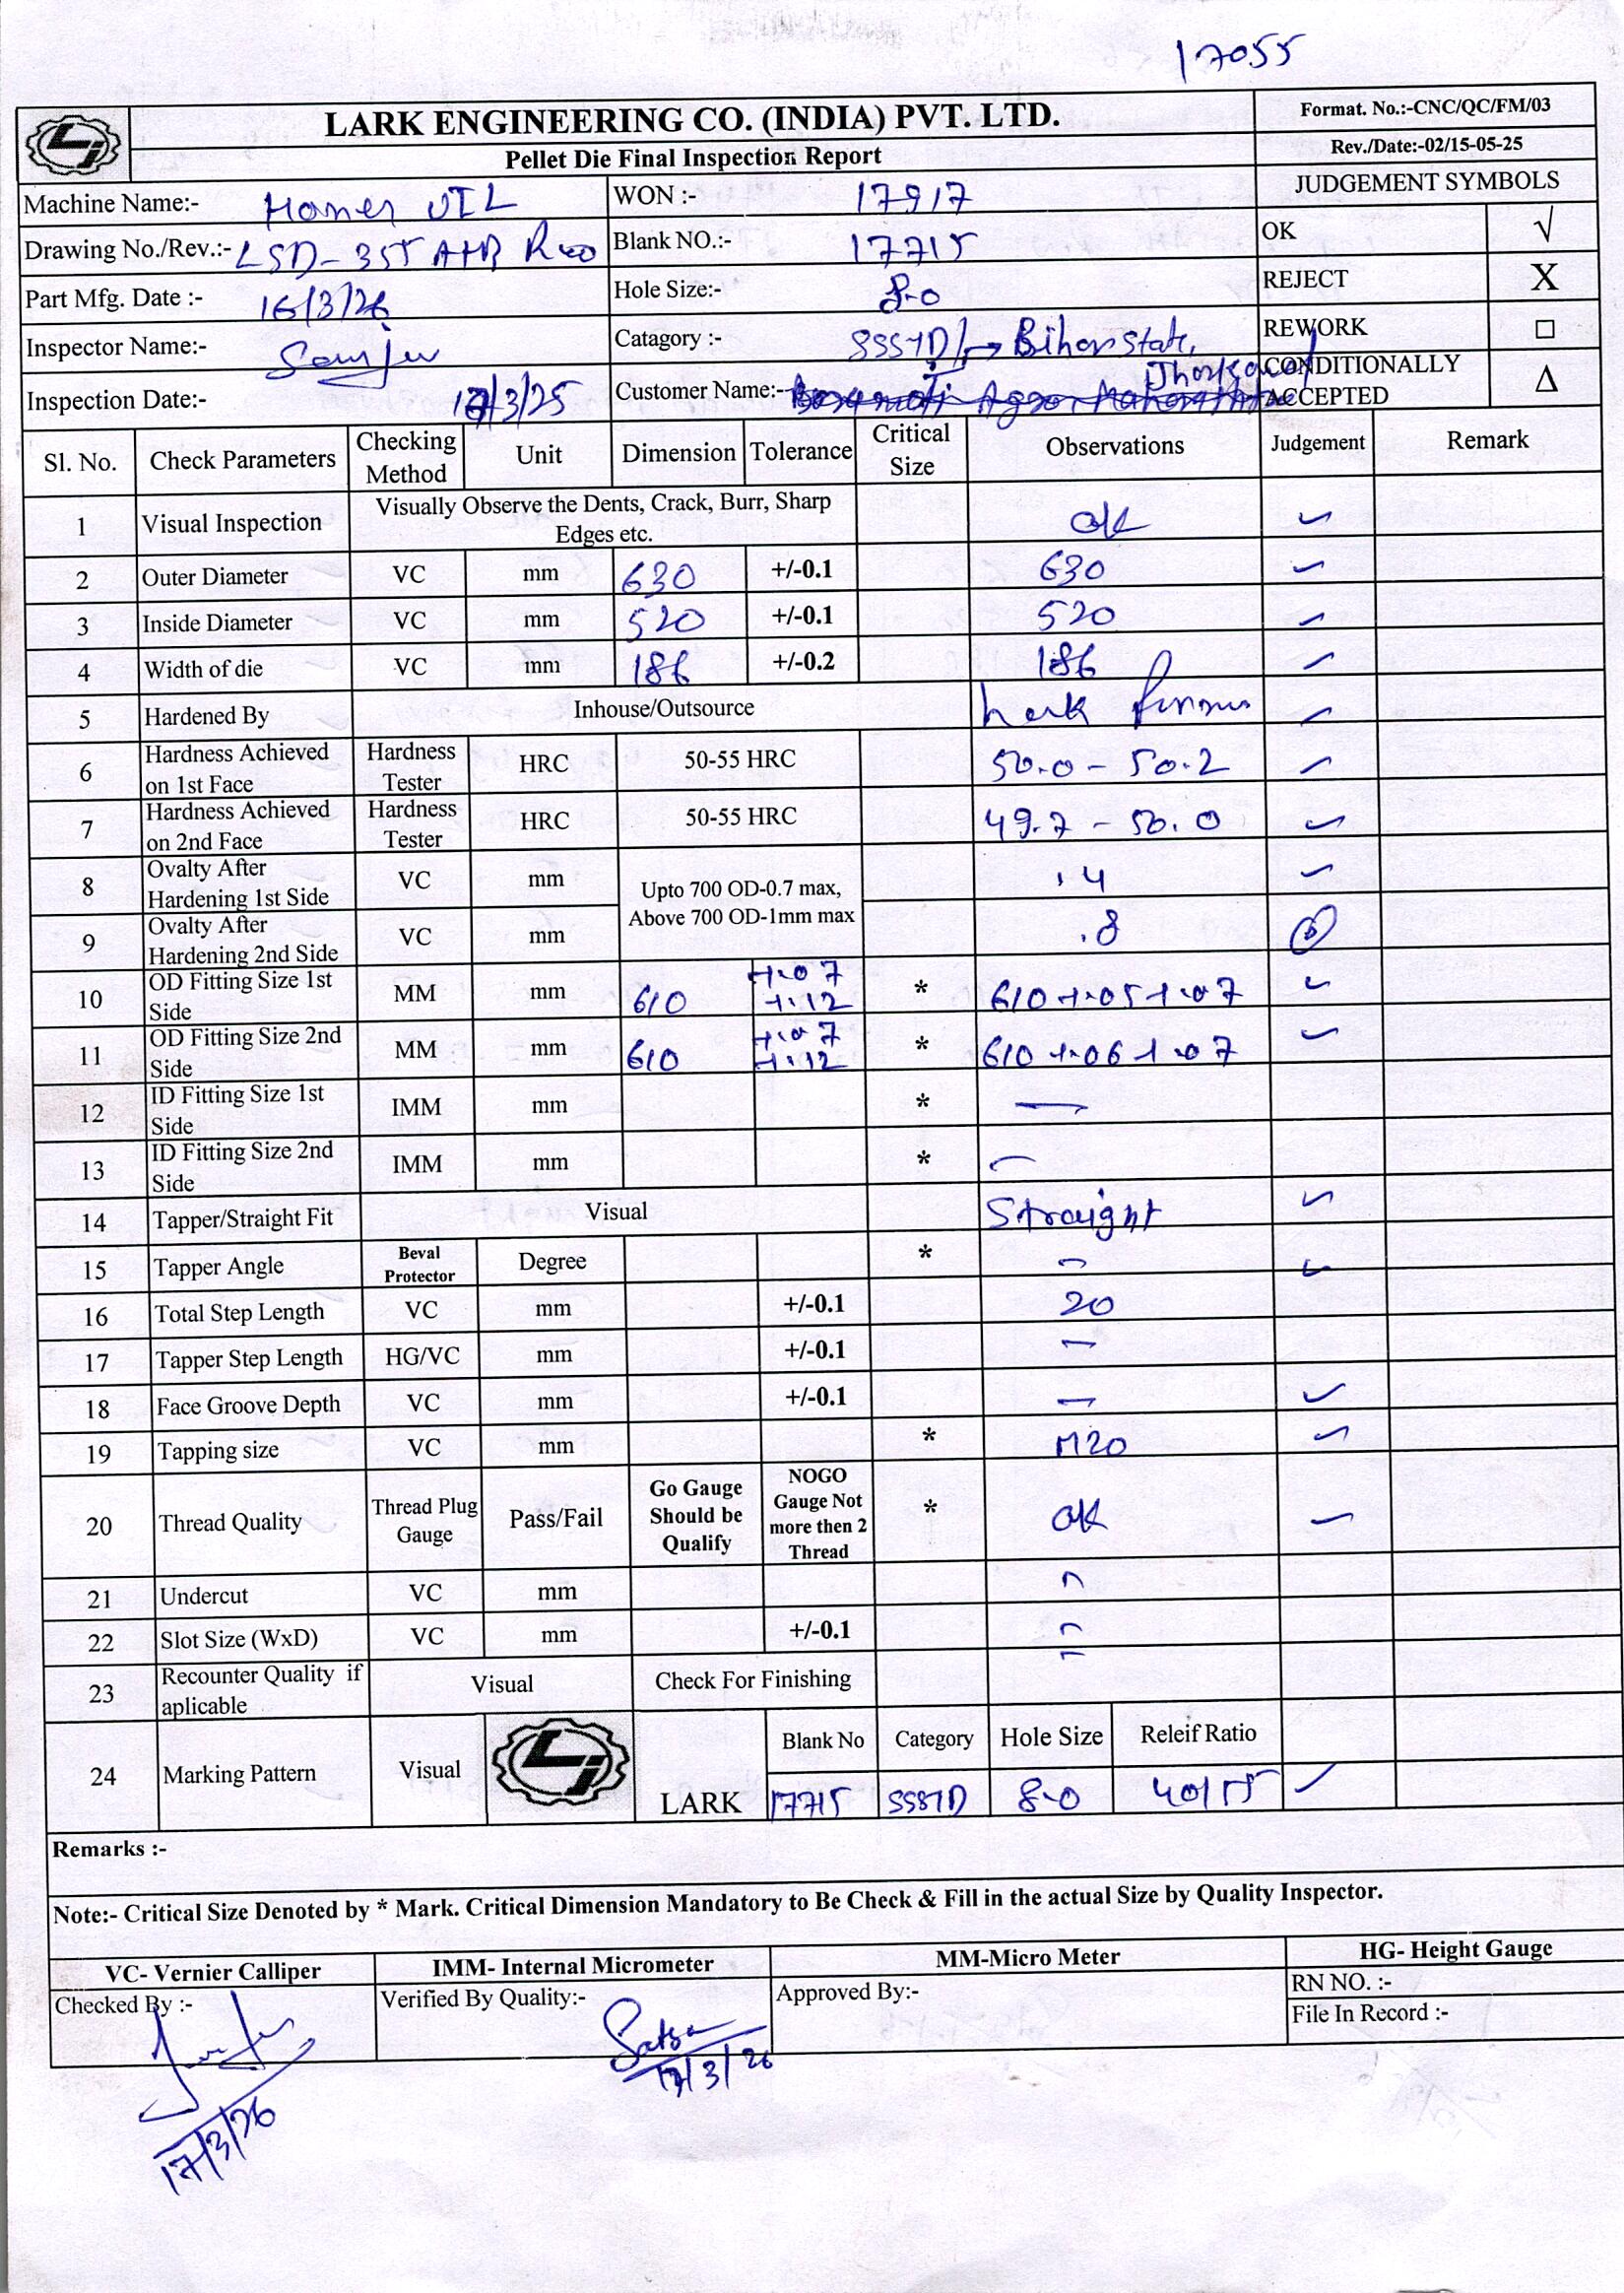 17055
LARK ENGINEERING CO. (INDIA) PVT. LTD.
Pellet Die Final Inspection Report
Format. No.:-CNC/QC/FM/03
Rev./Date:-02/15-05-25
JUDGEMENT SYMBOLS
OK √
REJECT X
REWORK □
CONDITIONALLY ACCEPTED Δ
Machine Name:- WON :- 17917
Drawing No./Rev.:- LSD-355 Blank NO.:- 17715
Part Mfg. Date :- 16/3/26 Hole Size:- 8.0
Inspector Name:- Sanju Catagory :- State,
Inspection Date:- /3/25 Customer Name:-
Sl. No. Check Parameters Checking Method Unit Dimension Tolerance Critical Size Observations Judgement Remark
1 Visual Inspection Visually Observe the Dents, Crack, Burr, Sharp Edges etc. ok
2 Outer Diameter VC mm 630 +/-0.1 630
3 Inside Diameter VC mm 520 +/-0.1 520
4 Width of die VC mm 186 +/-0.2 186
5 Hardened By Inhouse/Outsource
6 Hardness Achieved on 1st Face Hardness Tester HRC 50-55 HRC 50.0 - 50.2
7 Hardness Achieved on 2nd Face Hardness Tester HRC 50-55 HRC 49.7 - 50.0
8 Ovalty After Hardening 1st Side VC mm Upto 700 OD-0.7 max, Above 700 OD-1mm max .4
9 Ovalty After Hardening 2nd Side VC mm .8
10 OD Fitting Size 1st Side MM mm 610 +.07 +.12 * 610 +.05 +.07
11 OD Fitting Size 2nd Side MM mm 610 +.07 +.12 * 610 +.06 +.07
12 ID Fitting Size 1st Side IMM mm * —
13 ID Fitting Size 2nd Side IMM mm * —
14 Tapper/Straight Fit Visual Straight
15 Tapper Angle Beval Protector Degree * —
16 Total Step Length VC mm +/-0.1 20
17 Tapper Step Length HG/VC mm +/-0.1 —
18 Face Groove Depth VC mm +/-0.1 —
19 Tapping size VC mm * M20
20 Thread Quality Thread Plug Gauge Pass/Fail Go Gauge Should be Qualify NOGO Gauge Not more then 2 Thread * OK
21 Undercut VC mm
22 Slot Size (WxD) VC mm +/-0.1
23 Recounter Quality if aplicable Visual Check For Finishing
24 Marking Pattern Visual LARK Blank No Category Hole Size Releif Ratio
17715 8.0
Remarks :-
Note:- Critical Size Denoted by * Mark. Critical Dimension Mandatory to Be Check & Fill in the actual Size by Quality Inspector.
VC- Vernier Calliper IMM- Internal Micrometer MM-Micro Meter HG- Height Gauge
Checked By :- Verified By Quality:- Approved By:- RN NO. :-
File In Record :-
17/3/26
17/3/26